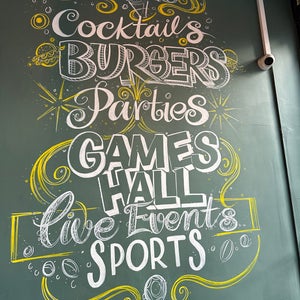 Cocktails
BURGERS
Parties
GAMES
HALL
live Events
SPORTS